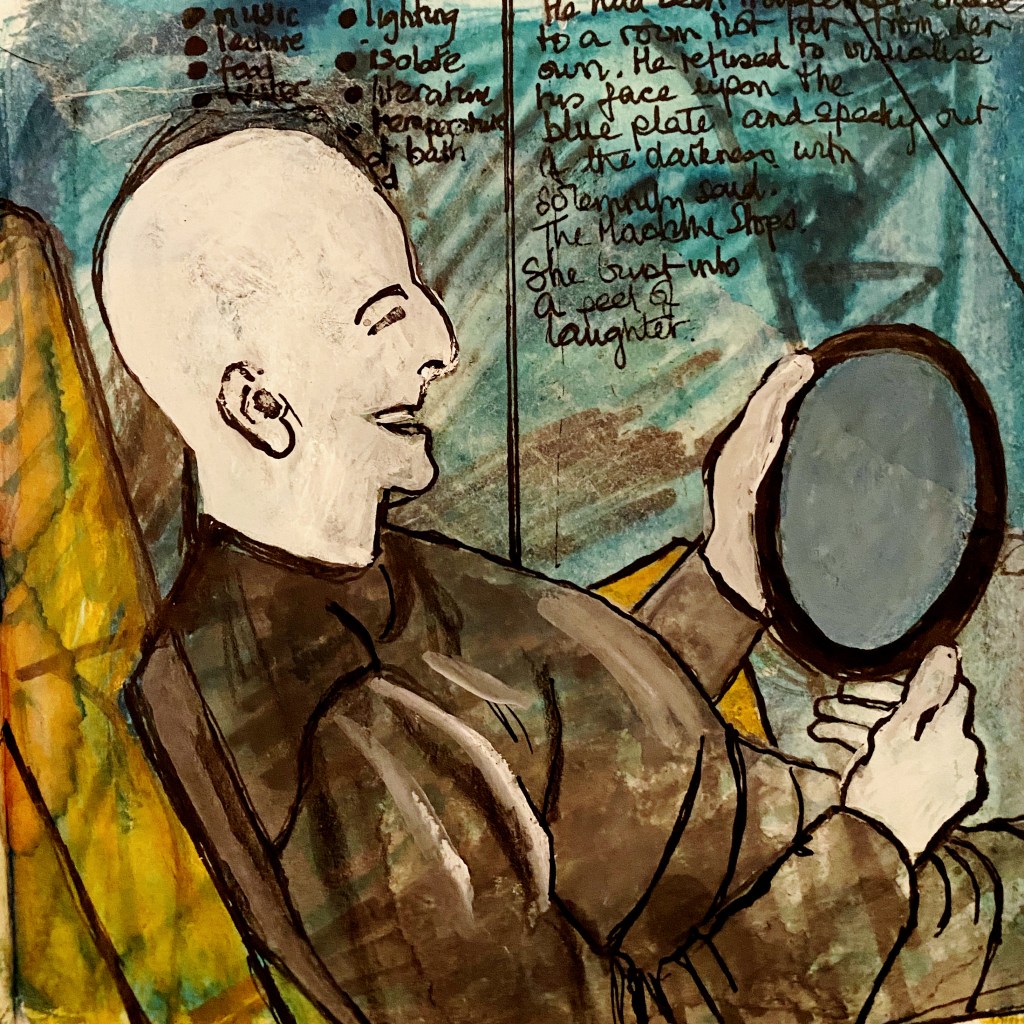 music
lecture
food
water
lighting
isolate
literature
temperature
of bath
He had been
to a room not far from her
own. He refused to visualise
his face upon the
blue plate and out
of the darkness with
solemnity said.
The Machine Stops.
She burst into
a peel of
laughter.